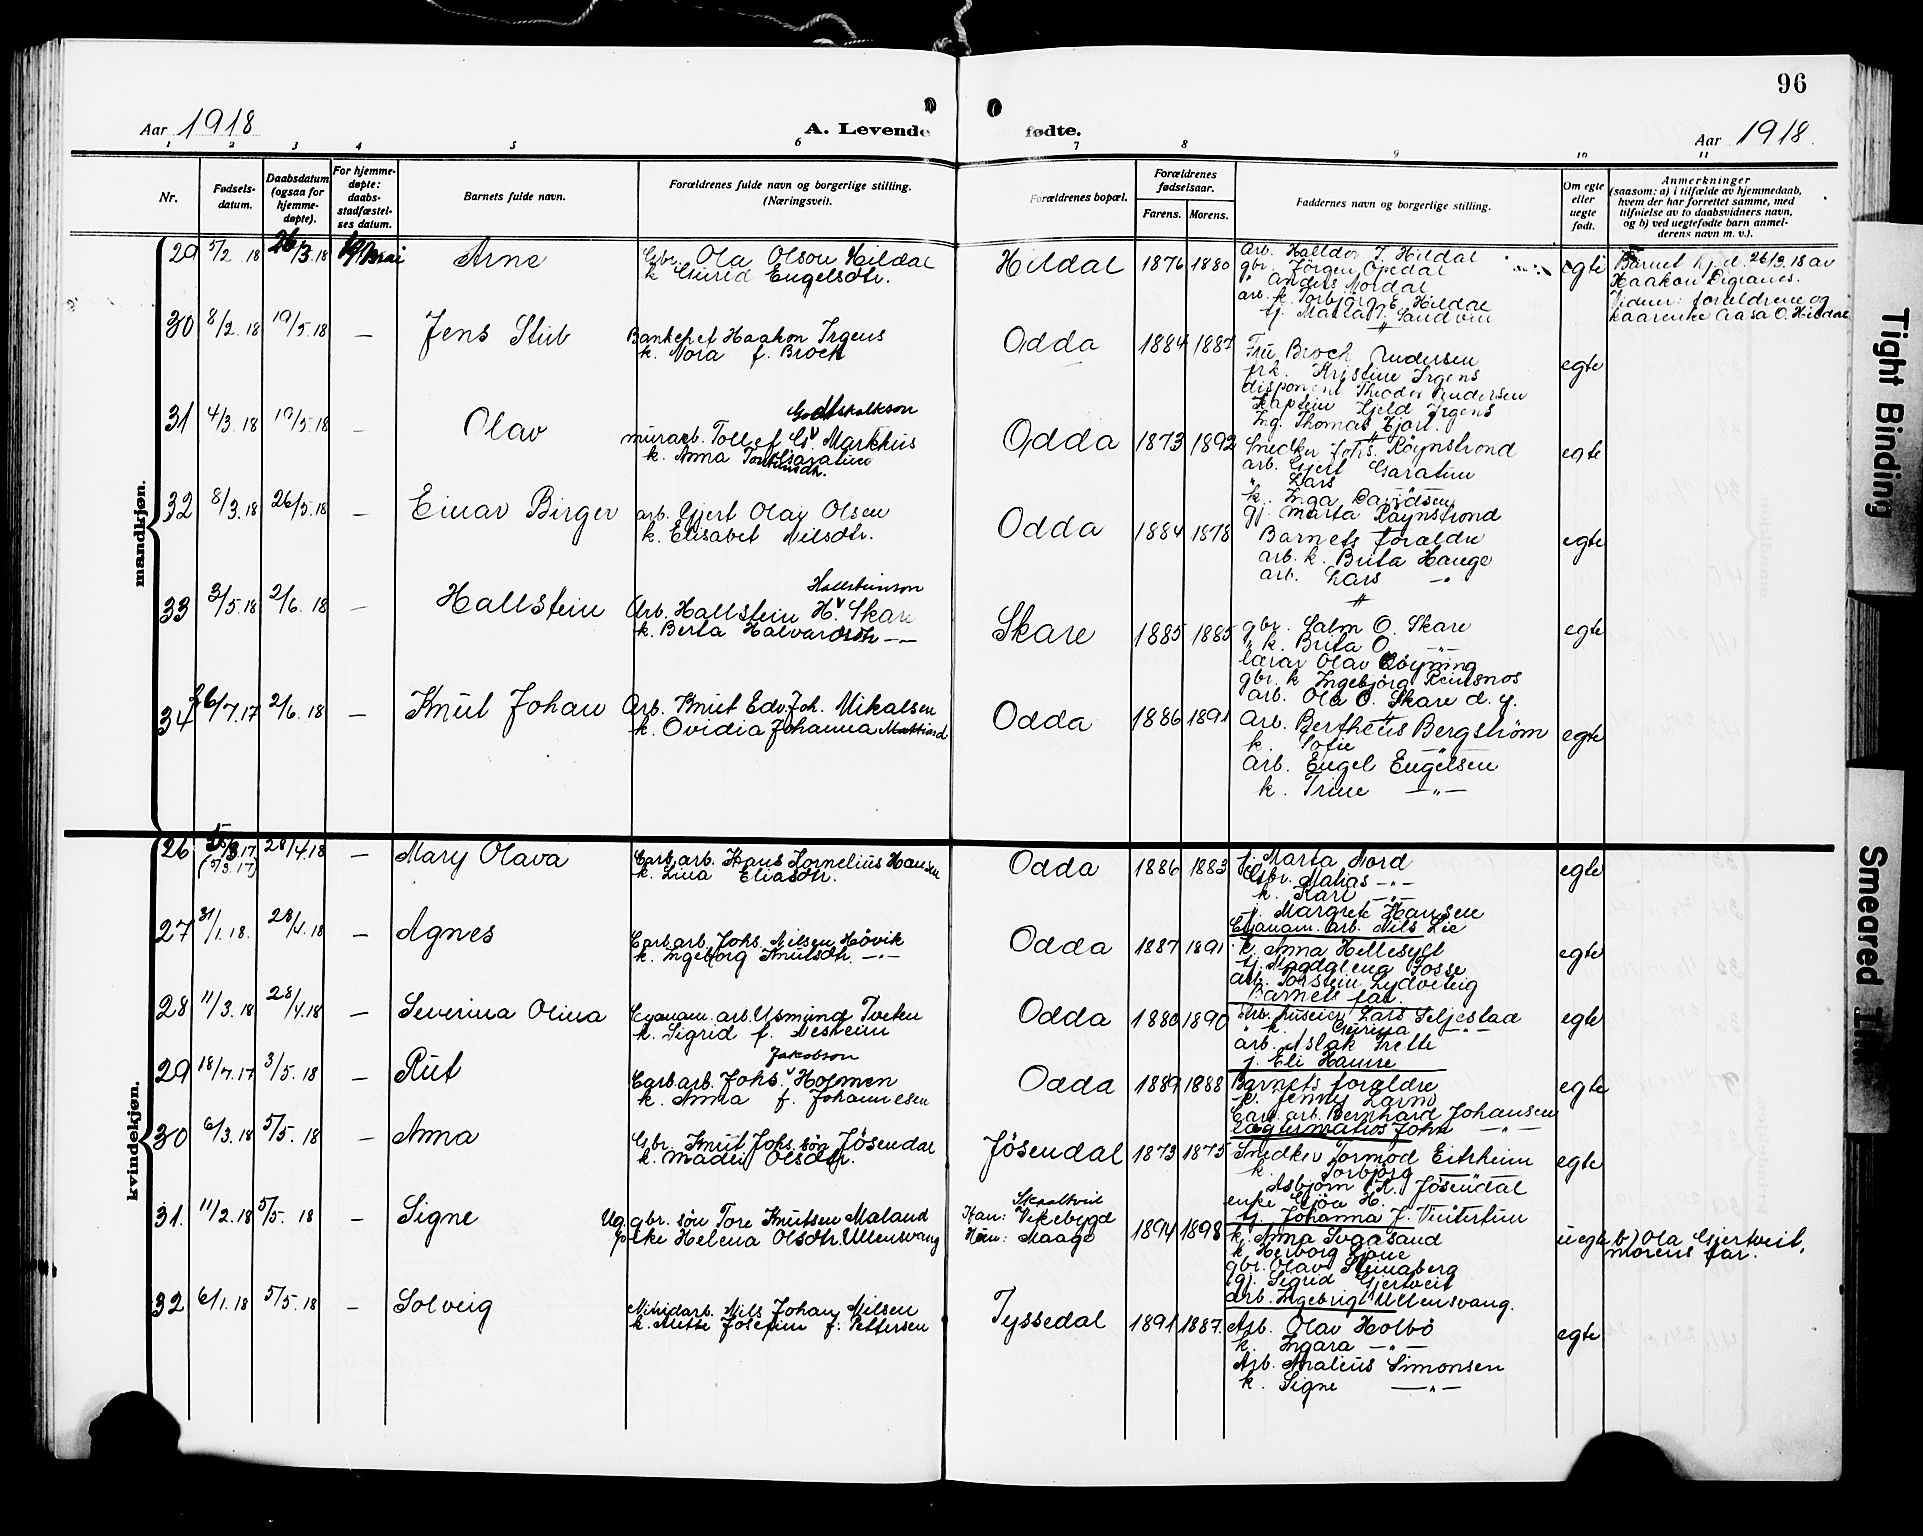 96
Aar 1918
A. Levende fødte.
Aar 1918.
1 2 3 4 5 6 7 8 9 10 11
Nr.
Fødsels-
datum.
Daabsdatum
(ogsaa for
hjemme-
døpte).
For hjemme-
døpte:
daabs-
stadfæstel-
ses datum.
Barnets fulde navn.
Forældrenes fulde navn og borgerlige stilling.
(Næringsvei).
Forældrenes bopæl.
Forældrenes
fødselsaar.
Farens. Morens.
Faddernes navn og borgerlige stilling.
Om egte
eller
uegte
født.
Anmerkninger
(saasom: a) i tilfælde av hjemmedaab,
hvem der har forrettet samme, med
tilføielse av to daabsvidners navn,
og b) ved uegtefødte barn anmel-
derens navn m. v.).
mandkjøn.
29 5/2 18 26/3 18 Arne
Gbr. Ola Olson Hildal
k Gurid Engelsdtr.
Hildal 1876 1880
Arb. Halldor T. Hildal
gbr. Jørgen Opedal
" Anders Mordal
arb. k. Torbjørg E. Hildal
tj. Marta T. Sandvin
egte
Barnet hj.d. 26/3. 18 av
Haakon Digranes.
Vidner: foreldrene og
kaarenke Aasa O. Hildal
30 8/2. 18 19/5. 18 — Jens Stub
Bankchef Haakon Irgens
k. Nora f. Brock
Odda 1884 1887
Fru Broch Andersen
frk. Kristine Irgens
disponent Theodor Andersen
Kaptein Kjeld Irgens
Ing. Thomas Fjort.
egte
31 4/3. 18 19/5. 18 — Olav
Godtskalkson
murarb. Tollef G. Markhus
k. Anna Garatun
Odda 1873 1892
Snedker Johs. Røynstrond
arb. Gjert Garatun
" Lars —
k. Inga Davidsen
gj. Marta Røynstrond
egte
32 8/3. 18 26/5. 18 — Einar Birger
arb. Gjert Olav Olsen
k. Elisabet Nilsdtr.
Odda 1884 1878
Barnets foraldre
arb. k. Brita Hauge
arb. Lars — " —
egte
33 3/5. 18 2/6. 18 — Hallstein
Hallsteinson
Arb. Hallstein H. Skare
k. Berta Halvardsdtr — " —
Skare 1885 1885
gbr. Salm O. Skare
" k. Brita O. — " —
lærar Olav Løyning
gbr. k Ingebjørg Reinsnos
arb. Ola O. Skare d. y.
egte
34 6/7. 17 2/6. 18 — Knut Johan
Arb. Knut Edv. Joh. Mikalsen
k. Ovidia Johanna
Odda 1886 1891
Arb. Bertheus Bergstrøm
k. Sofie — " —
Arb. Engel Engelsen
k. Trine — " —
egte
kvindekjøn.
26 5/3 17 (5/3. 17) 28/4. 18 — Mary Olava
Carb arb. Hans Kornelius Hansen
k. Lina Eliasdtr.
Odda 1886 1883
tj. Marta Nord
Gbr. Matias — " —
k. Kari — " —
j. Margrete Hansen
Cyanam. arb. Nils Lie
egte
27 31/1. 18. 28/4. 18 — Agnes
Carb arb. Johs. Nilsen Høvik
k. Ingeborg Knutsdtr. — " —
Odda 1887 1891
k. Anna Hellesylt
tj. Magdalena Fosse
arb. Torstein Lydvenig
Barnets far.
egte
28 11/3. 18 28/4. 18 — Severina Olina
Cyanam. arb. Asmund Tveten
k. Sigrid f. Nesheim
Odda 1880 1890
Lars Seljestad
" k. Gurina — " —
arb. Aslak Trette
j. Eli Hamre
egte
29 18/7. 17 3/5. 18 — Rut
Jakobson
Carb arb. Johs. Holmen
k. Anna f. Johannesen
Odda 1889 1888
Barnets foraldre
k. Jenny Larm
Carb. arb. Bernhard Johansen
John — " —
egte
30 6/3. 18 5/5. 18 — Anna
Gbr. Knut Johs. søn Jøsendal
k. Madli Olsdtr.
Jøsendal 1873 1875
Snedker Tormod Eitrheim
k. Torbjørg — " —
Asbjørn K. Jøsendal
enke Gjøa H. — " —
tj. Johanna J. Vintertun
egte
31. 11/2. 18 5/5. 18 — Signe
Ug. gbr. søn Tore Knutsen Maland
pike Helena Olsdtr. Ullensvang
Han: Vikebygd
Hun: Maage
1894 1898
k. Anna Tveasand
k. Herborg Tjoue
gbr. Olav Skinaberg
gj. Sigrid Gjertveit
arb. Ingebrigt Ullensvang.
uegte
b) Ola Gjertveit,
morens far.
32 6/1. 18 5/5. 18 — Solveig
Nitridarb. Nils Johan Nilsen
k. Anette Josefine f. Pettersen
Tyssedal 1891 1887.
Arb. Olav Holbø
k. Ingara — " —
Arb. Analius Simonsen
k. Signe — " —
egte
Tight Binding
Smeared Ink